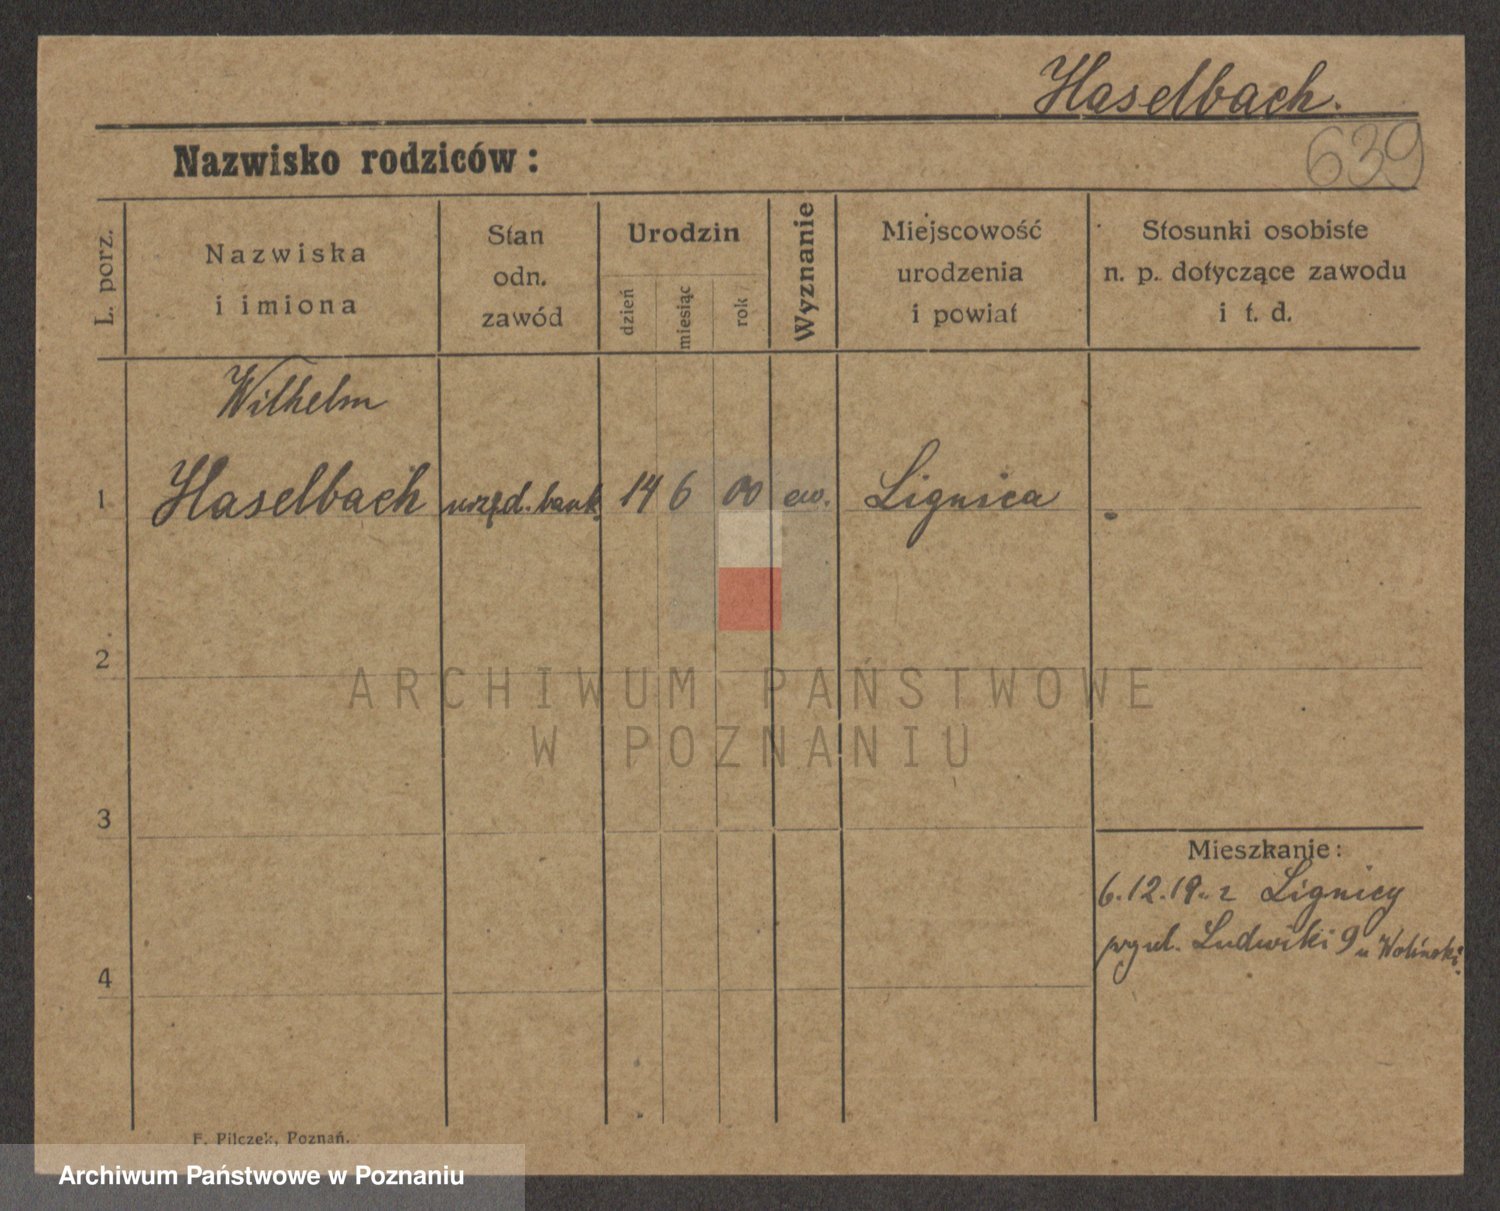 Haselbach.
639
Nazwisko rodziców:
L. porz.
Nazwiska
i imiona
Stan
odn.
zawód
Urodzin
dzień
miesiąc
rok
Wyznanie
Miejscowość
urodzenia
i powiat
Stosunki osobiste
n. p. dotyczące zawodu
i t. d.
Wilhelm
1 Haselbach urzęd. bank. 14 6 00 ew. Lignica
2
ARCHIWUM PAŃSTWOWE
W POZNANIU
3
Mieszkanie:
6.12.19. z Lignicy
Ludwiki 9 u Woliński
4
F. Pilczek, Poznań.
Archiwum Państwowe w Poznaniu